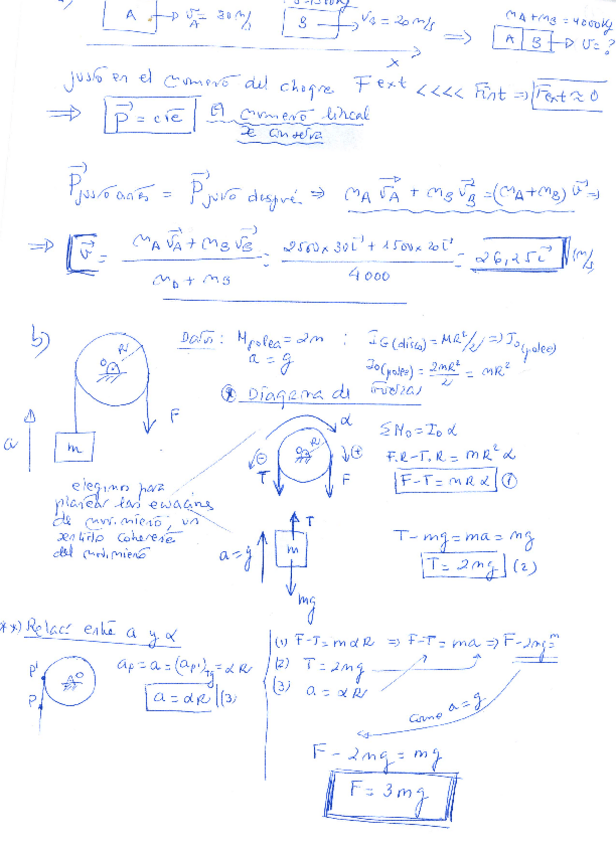 A → v⃗A = 30 m/s B → v⃗B = 20 m/s ⟹ mA+mB = 4000kg
A B → v = ?
x
justo en el momento del choque Fext <<<< Fint ⟹ Fext ≈ 0
⟹ P⃗ = cte El momento lineal
se conserva
P⃗ justo antes = P⃗ justo después ⟹ mA v⃗A + mB v⃗B = (mA+mB) v⃗ ⟹
⟹ v⃗ = (mA v⃗A + mB v⃗B)/(mA + mB) = (2500x30i⃗ + 1500x20i⃗)/4000 = 26,25i⃗ (m/s)
b) Datos: Mpolea = 2m ; IG(disco) = MR²/2 ⟹ IO(polea)
a = g IO(polea) = 2mR²/2 = mR²
* Diagrama de fuerzas
O R F m a
α
ΣMO = IO α
⊖ O R ⊕
T F
F.R - T.R = mR² α
F - T = mRα (1)
elegimos para
plantear las ecuaciones
de movimiento, un
sentido coherente
del movimiento
T
a = g m
mg
T - mg = ma = mg
T = 2mg (2)
**) Relac entre a y α
P' P O
aP = a = (aP')Tg = αR
a = αR (3)
(1) F - T = mαR ⟹ F - T = ma ⟹ F - 2mg =
(2) T = 2mg
(3) a = αR
como a = g
F - 2mg = mg
F = 3mg